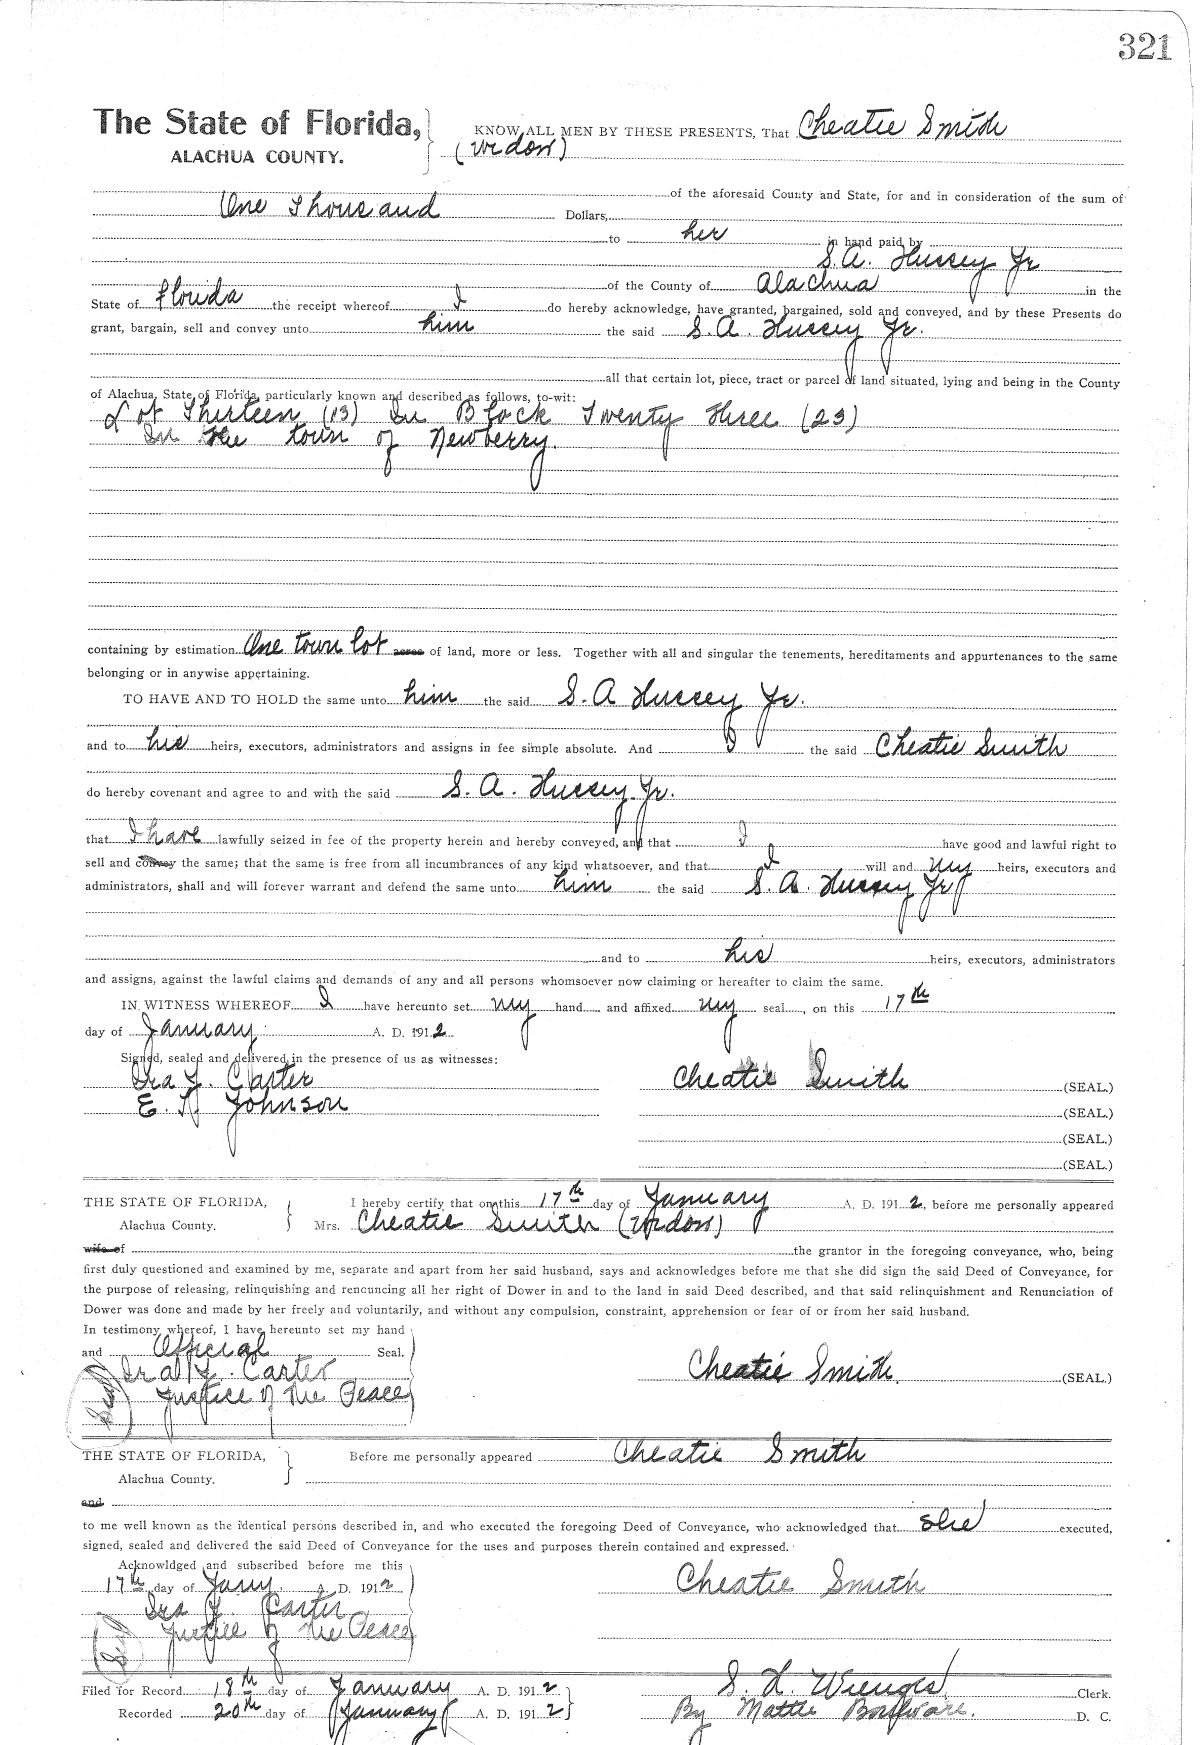 321
The State of Florida, KNOW ALL MEN BY THESE PRESENTS, That Cheatie Smith
ALACHUA COUNTY. (Widow)
of the aforesaid County and State, for and in consideration of the sum of
One Thousand Dollars,
to her in hand paid by
S. A. Hussey Jr
of the County of Alachua in the
State of Florida the receipt whereof I do hereby acknowledge, have granted, bargained, sold and conveyed, and by these Presents do
grant, bargain, sell and convey unto him the said S. A. Hussey Jr.
all that certain lot, piece, tract or parcel of land situated, lying and being in the County
of Alachua, State of Florida, particularly known and described as follows, to-wit:
Lot Thirteen (13) In Block Twenty three (23)
In the town of Newberry.
containing by estimation One town lot acres of land, more or less. Together with all and singular the tenements, hereditaments and appurtenances to the same
belonging or in anywise appertaining.
TO HAVE AND TO HOLD the same unto him the said S. A Hussey Jr.
and to his heirs, executors, administrators and assigns in fee simple absolute. And I the said Cheatie Smith
do hereby covenant and agree to and with the said S. A. Hussey Jr.
that I have lawfully seized in fee of the property herein and hereby conveyed, and that I have good and lawful right to
sell and convey the same; that the same is free from all incumbrances of any kind whatsoever, and that I will and my heirs, executors and
administrators, shall and will forever warrant and defend the same unto him the said S. A. Hussey Jr
and to his heirs, executors, administrators
and assigns, against the lawful claims and demands of any and all persons whomsoever now claiming or hereafter to claim the same.
IN WITNESS WHEREOF I have hereunto set my hand and affixed my seal, on this 17th
day of January A. D. 1912
Signed, sealed and delivered in the presence of us as witnesses:
Ira J. Carter Cheatie Smith (SEAL.)
E. Johnson (SEAL.)
(SEAL.)
(SEAL.)
THE STATE OF FLORIDA, I hereby certify that on this 17th day of January A. D. 1912, before me personally appeared
Alachua County. Mrs. Cheatie Smith (Widow)
wife of the grantor in the foregoing conveyance, who, being
first duly questioned and examined by me, separate and apart from her said husband, says and acknowledges before me that she did sign the said Deed of Conveyance, for
the purpose of releasing, relinquishing and renouncing all her right of Dower in and to the land in said Deed described, and that said relinquishment and Renunciation of
Dower was done and made by her freely and voluntarily, and without any compulsion, constraint, apprehension or fear of or from her said husband.
In testimony whereof, I have hereunto set my hand
and Official Seal.
Ira J. Carter Cheatie Smith (SEAL.)
(Seal) Justice of the Peace
THE STATE OF FLORIDA, Before me personally appeared Cheatie Smith
Alachua County.
and
to me well known as the identical persons described in, and who executed the foregoing Deed of Conveyance, who acknowledged that she executed,
signed, sealed and delivered the said Deed of Conveyance for the uses and purposes therein contained and expressed.
Acknowldged and subscribed before me this
17th day of Jany. A. D. 1912 Cheatie Smith
Ira J. Carter
(Seal) Justice of the Peace
Filed for Record 18th day of January A. D. 1912 S. H. Wienges. Clerk.
Recorded 20th day of January A. D. 1912 By Mattie D. C.